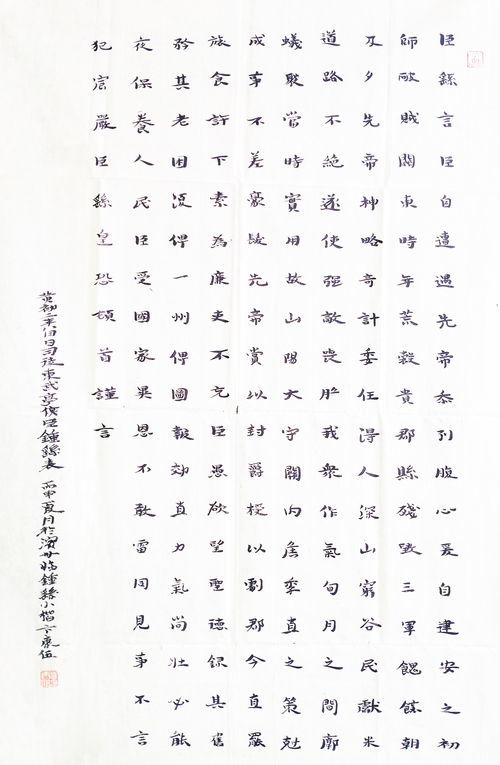 臣繇言臣自遭遇先帝忝列腹心爰自建安之初
師破賊關東時年荒穀貴郡縣殘毀三軍餽朝
及夕先帝神略奇計委任得人深山窮谷民獻米
道路不絕遂使强敵喪膽我衆作氣旬月之間廓
蟻聚當時實用故山陽大守關內侯季直之策尅
成事不差豪髮先帝賞以封爵授以劇郡今直罷
旅食許下素為廉吏不充臣愚欲望聖德錄其舊
矜其老困復俾一州俾圖報效直力氣尚壯必能
夜保養人民臣受國家異恩不敢雷同見事不言
犯宸嚴臣繇皇恐頓首謹言
黃初二年八月日司徒東武亭侯臣鍾繇表 丙申夏月於臨鍾繇小楷